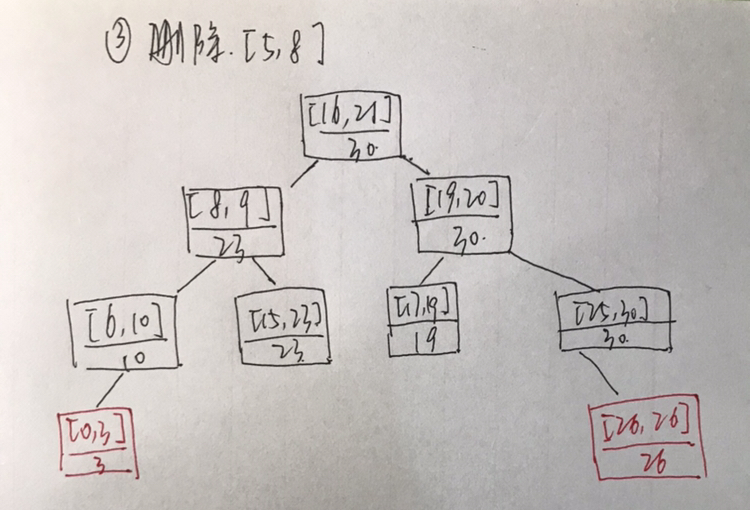 ③ 删除.[5,8]
[16,21]
30.
[8,9]
23
[19,20]
30.
[6,10]
10
[15,23]
23
[17,19]
19
[25,30]
30.
[0,3]
3
[26,26]
26